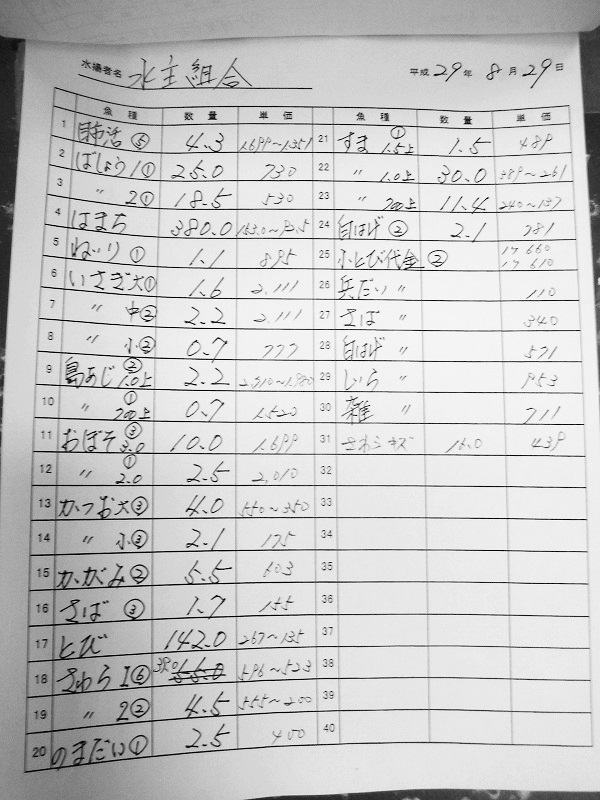 水揚者名 水主組合 平成 29年 8月 29日
魚種 数量 単価 魚種 数量 単価
1 活⑤ 4.3 1.699~1.351
2 ばしょう1① 25.0 730
3 〃 2① 18.5 530
4 はまち 380.0
5 ① 1.1 895
6 いさぎ大① 1.6 2,111
7 〃 中② 2.2 2,111
8 〃 小② 0.7 777
9 島あじ② 1.0上 2.2
10 〃 ① 700上 0.7 1.520
11 おぼそ③ 3.0 10.0 1.699
12 〃 ① 2.0 2.5 2,010
13 かつお大③ 4.0 550~350
14 〃 小③ 2.1 175
15 かがみ② 5.5 603
16 さば ③ 1.7 155
17 とび 142.0 267~135
18 さわら I⑥ 596~523
19 〃 2② 4.5 555~200
20 のまだい① 2.5 400
21 すま① 1.5上 1.5 489
22 〃 1.0上 30.0 389~261
23 〃 700上 11.4 240~187
24 白はげ② 2.1 781
25 小とび代金② 17 660 17 610
26 兵だい 〃 110
27 さば 〃 340
28 白はげ 〃 571
29 しいら 〃 953
30 雑 〃 711
31 さわら キズ 439
32
33
34
35
36
37
38
39
40